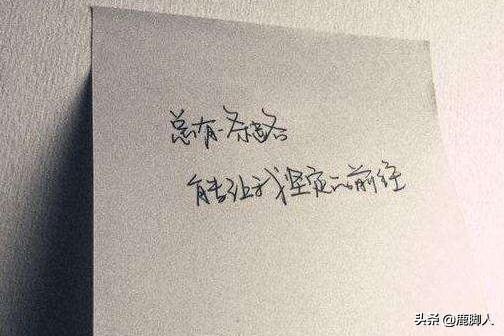 总有一条路
能让我坚定的前往
头条 @鹿脚人